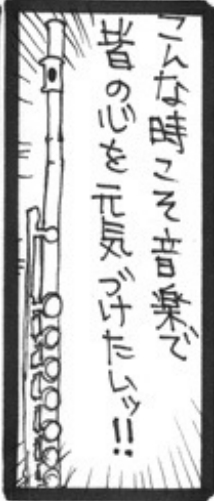 こんな時こそ音楽で
皆の心を元気づけたいッ!!